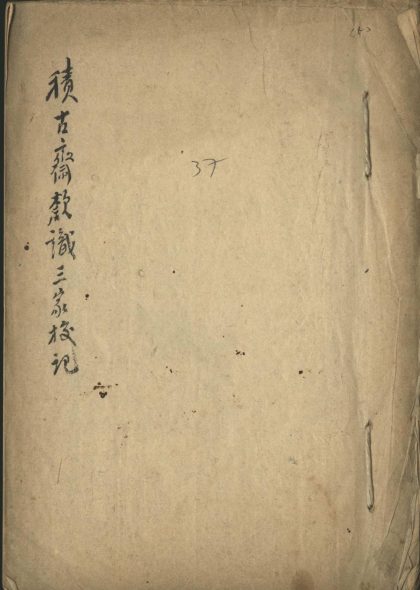 積古齋款識三家校記
37
(5)